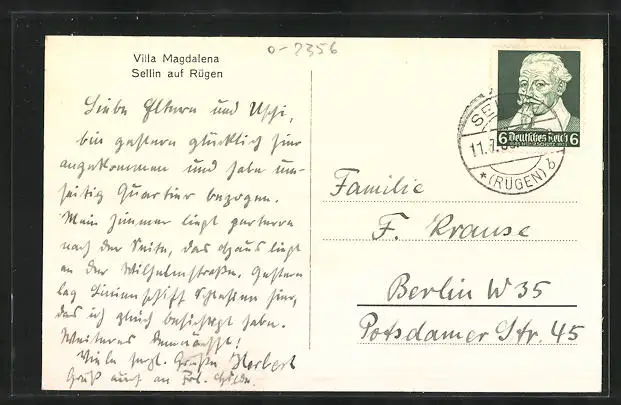 o-2356
Villa Magdalena
Sellin auf Rügen
Liebe Eltern und Uschi,
bin gestern glücklich hier
angekommen und habe
Quartier bezogen.
Mein Zimmer liegt parterre
nach der Seite, das Haus liegt
an der Wilhelmstraße. Gestern
lag Linienschiff Schlesien hier,
das ich gleich besichtigt habe.
Weiteres demnächst!
Viele herzl. Grüße Herbert
Gruß auch an Frl.
Deutsches Reich
6 6
SELLIN
11.7.
* (RÜGEN) b
Familie
F. Krause
Berlin W 35
Potsdamer Str. 45